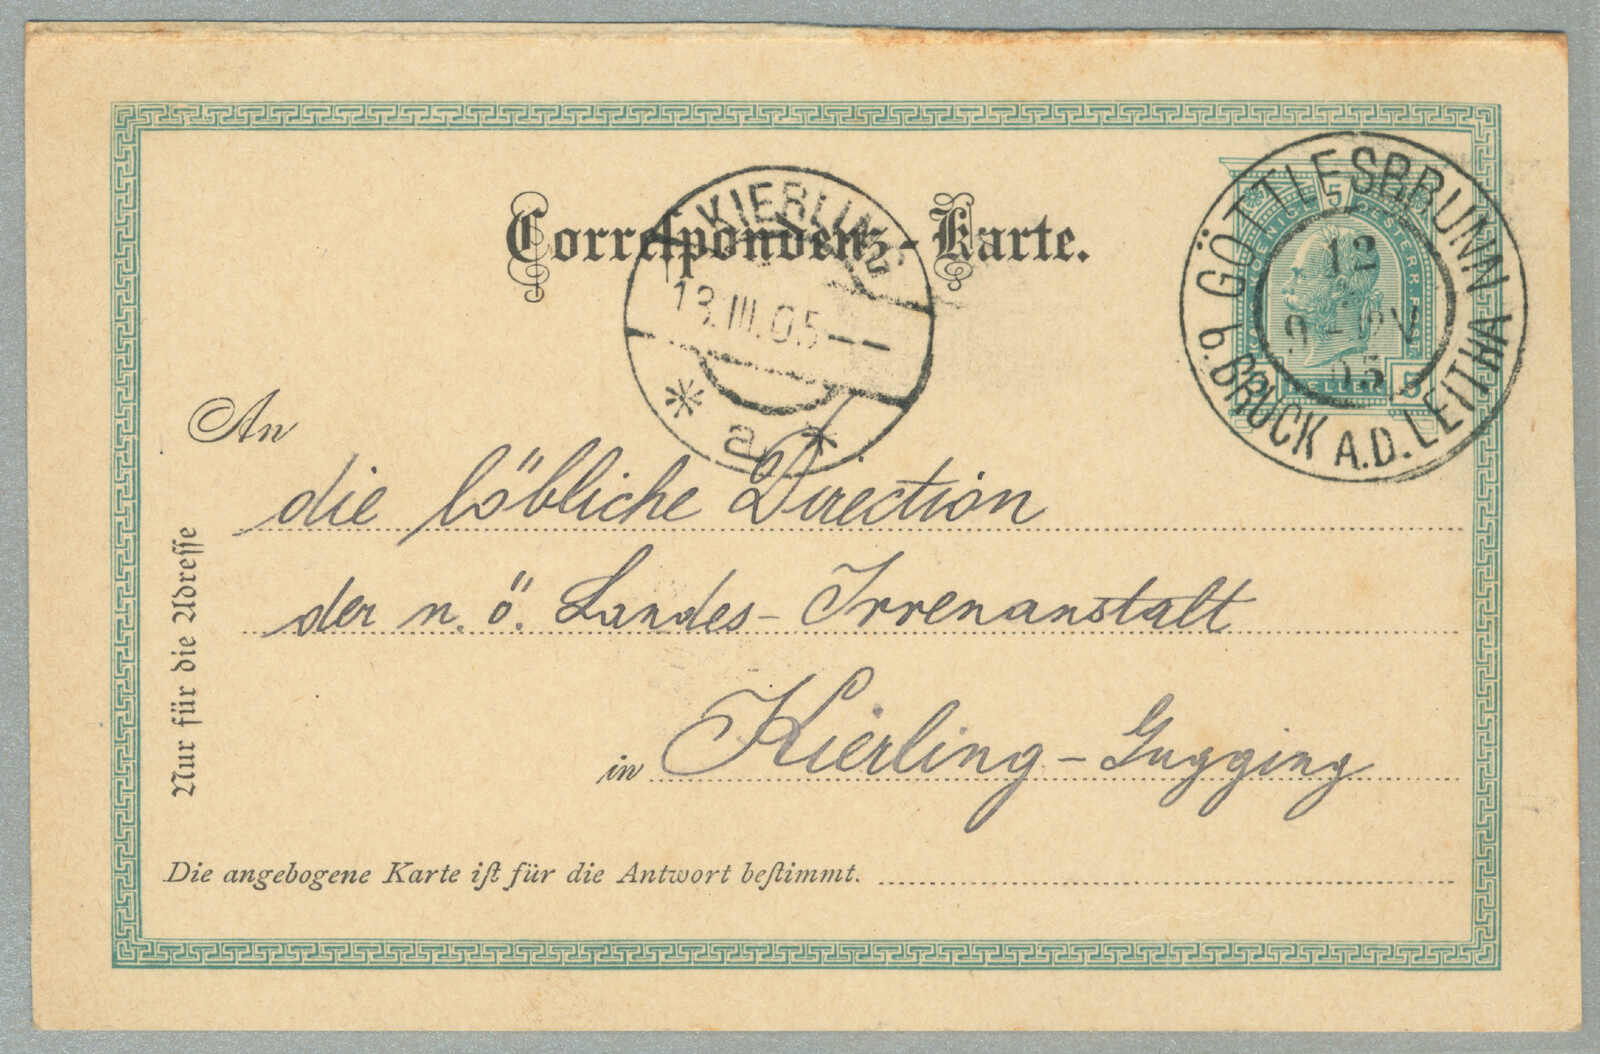 Correspondenz-Karte.
KIERLING
13.III.05
a
GÖTTLESBRUNN
b. BRUCK A.D. LEITHA
12
05
5
HELLER
5
An
die löbliche Direction
der n. ö. Landes-Irrenanstalt
in Kierling-Gugging
Nur für die Adresse
Die angebogene Karte ist für die Antwort bestimmt.